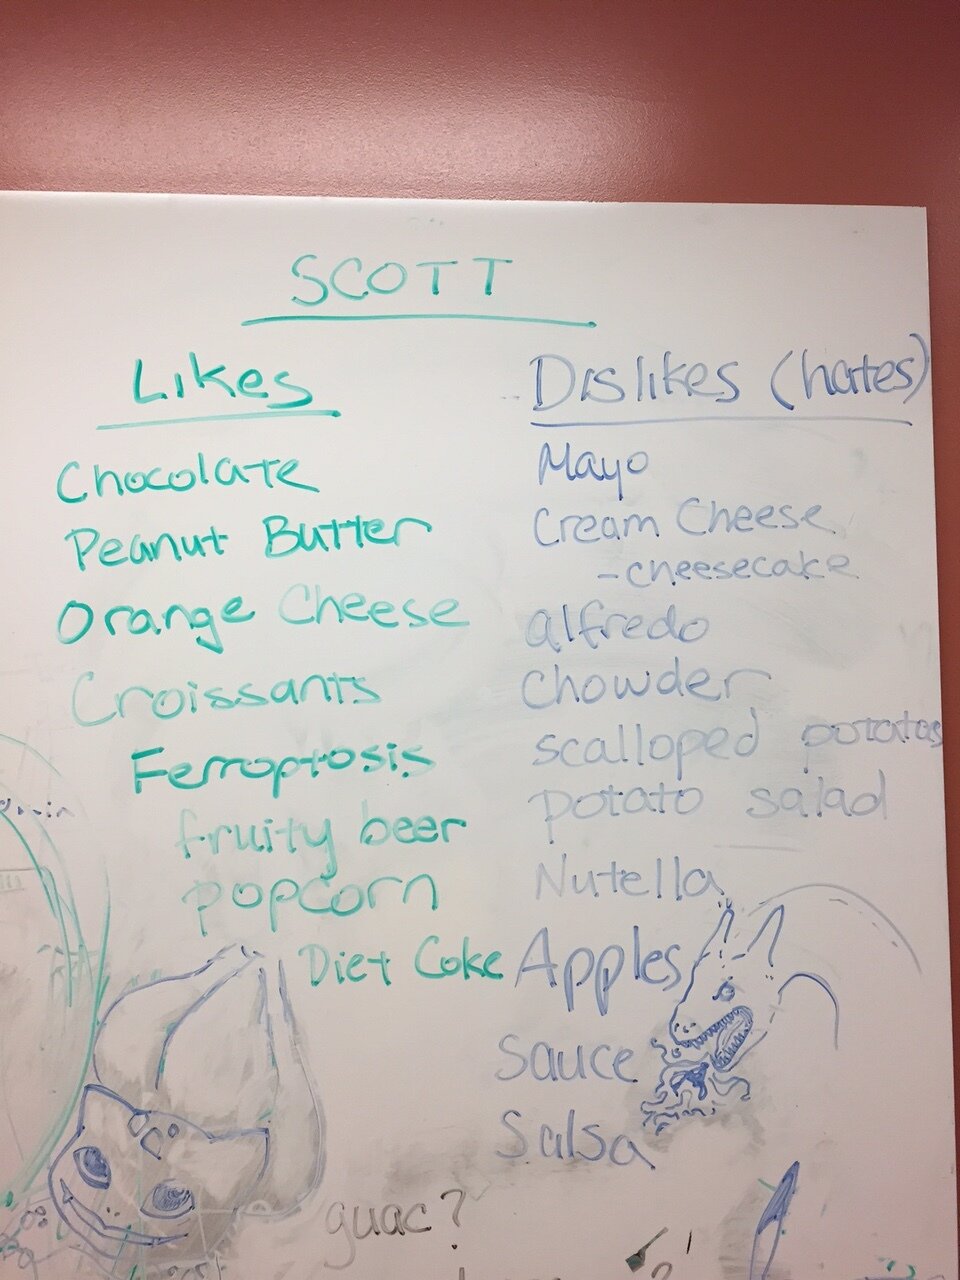 SCOTT
Likes
Chocolate
Peanut Butter
Orange Cheese
Croissants
Ferroptosis
fruity beer
popcorn
Diet Coke
Dislikes (hates)
Mayo
Cream Cheese
-cheesecake
alfredo
Chowder
scalloped potatas
potato salad
Nutella
Apples
Sauce
Salsa
guac?